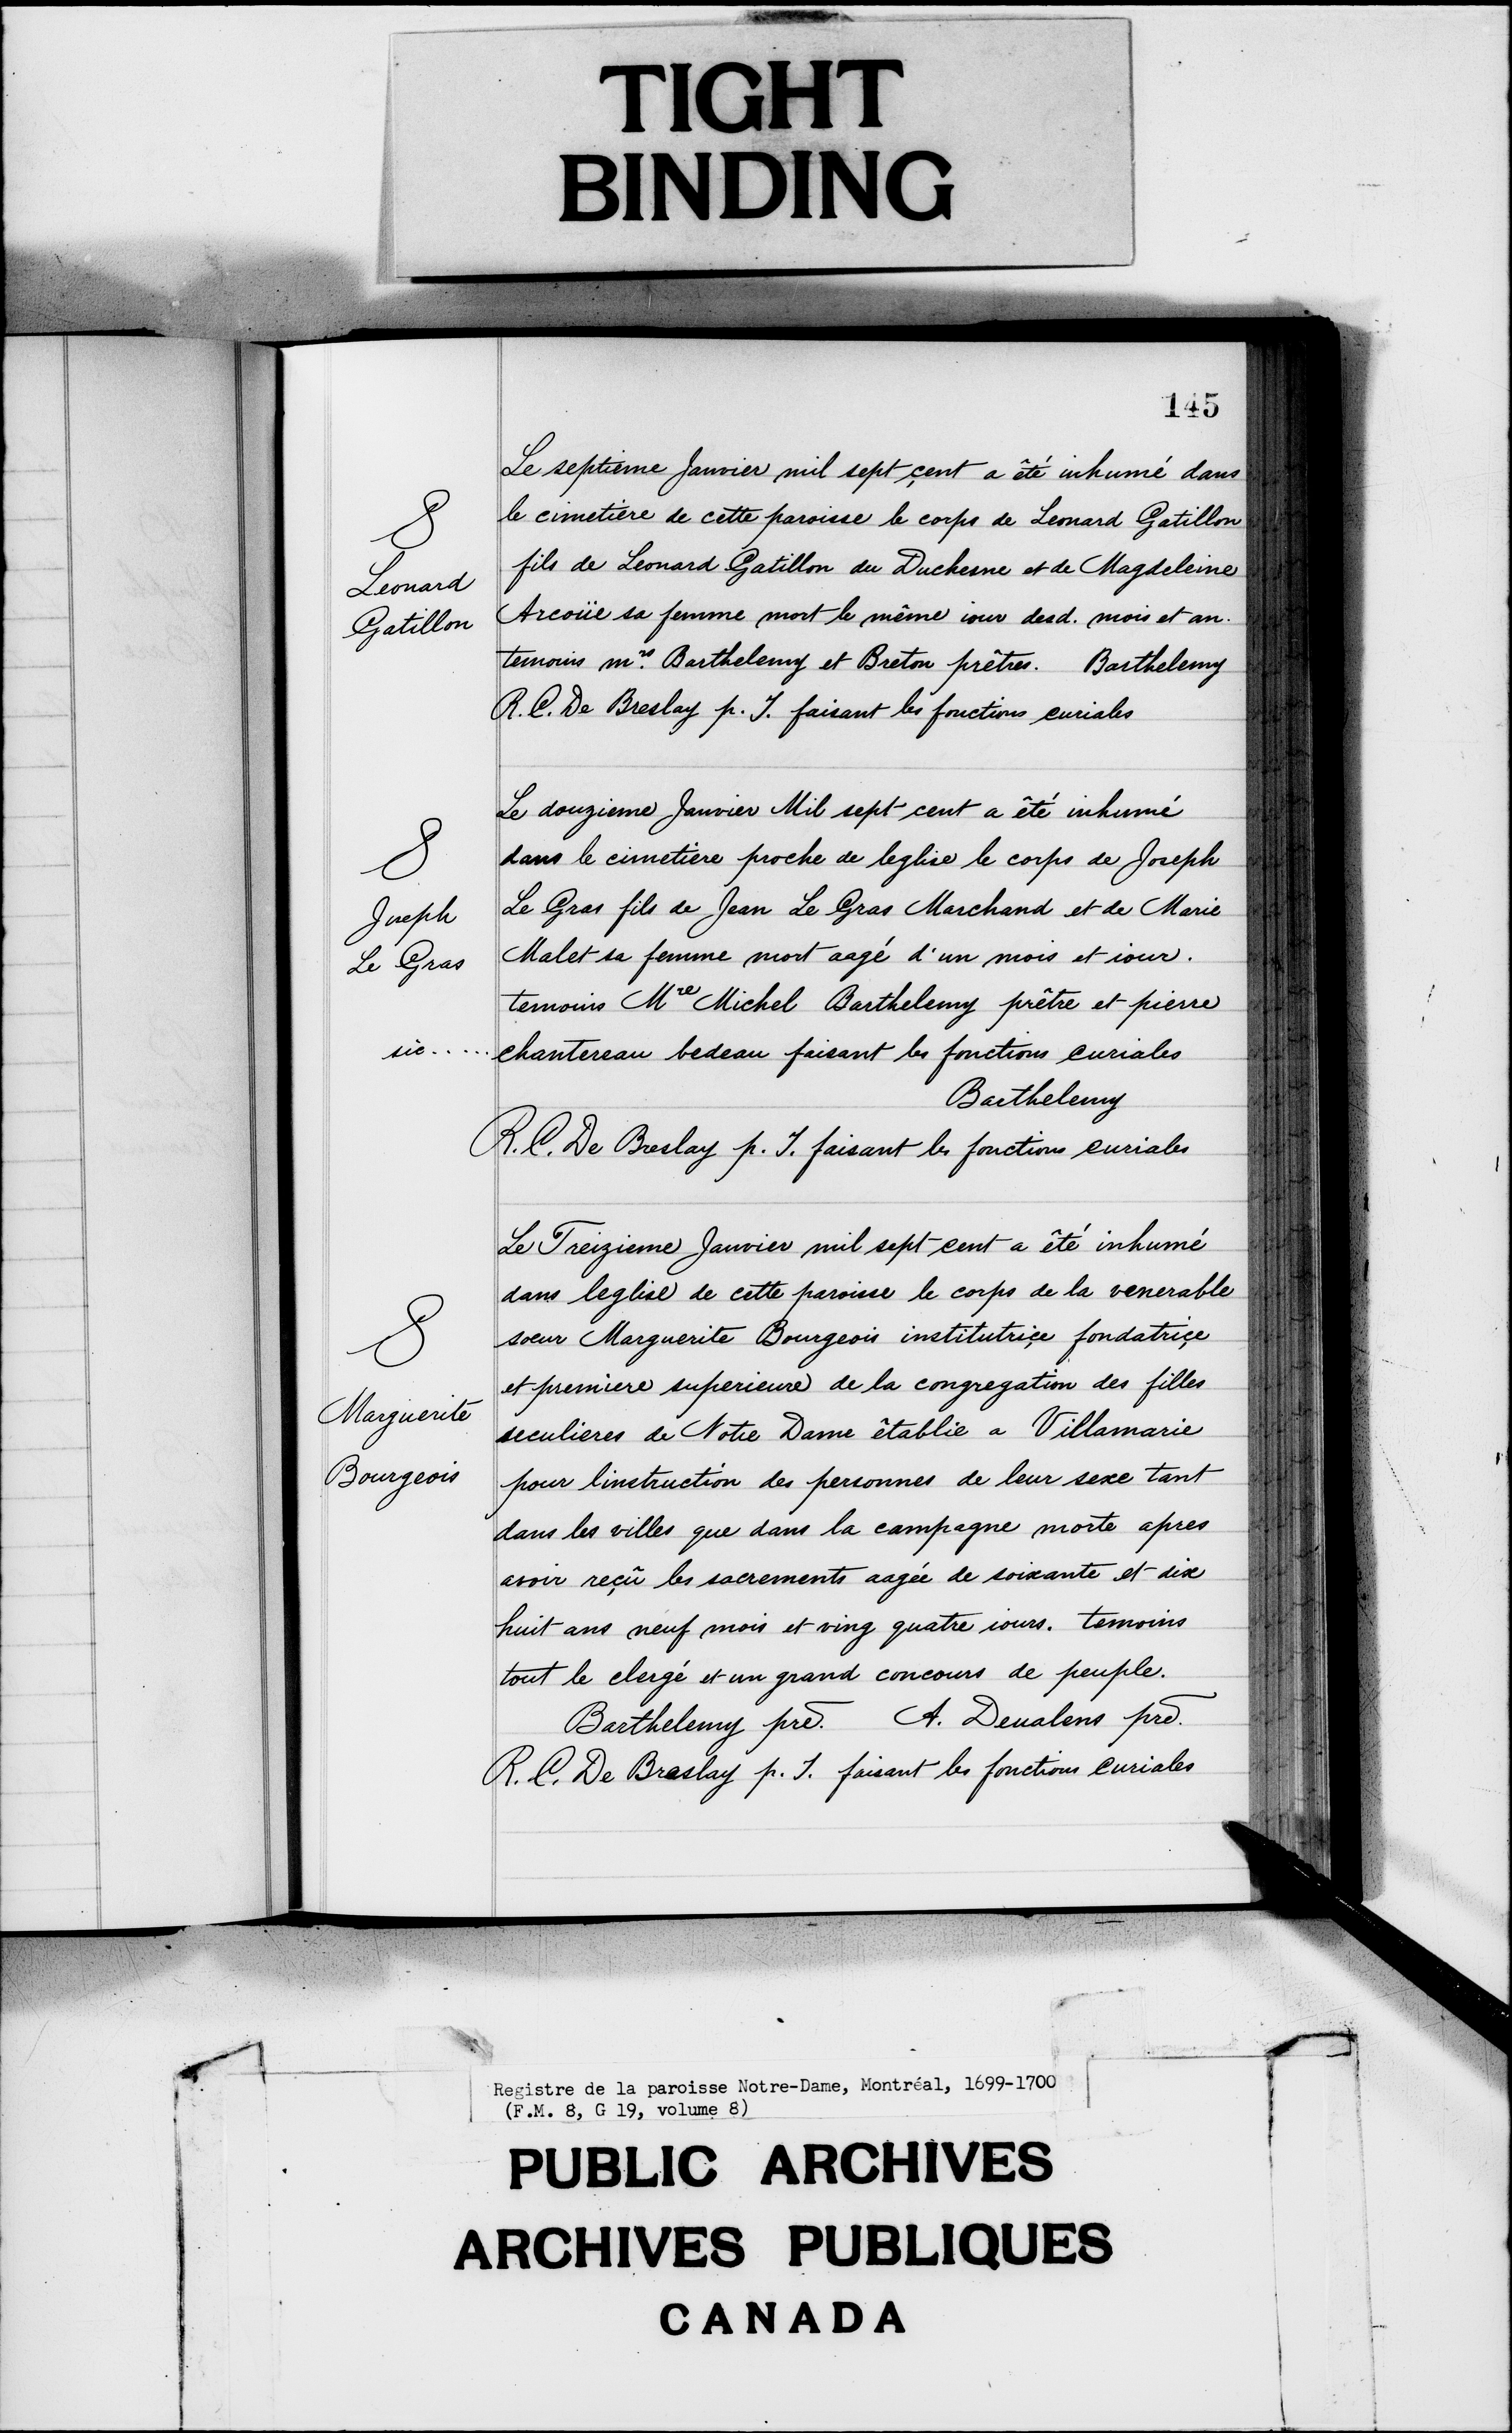 TIGHT
BINDING
145
Le septieme Janvier mil sept çent a êté inhumé dans
le cimetiere de cette paroisse le corps de Leonard Gatillon
fils de Leonard Gatillon du Duchesne et de Magdeleine
Leonard
Gatillon
Arcoüe sa femme mort le même iour desd. mois et an.
temoins mrs. Barthelemy et Breton prêtres. Barthelemy
R. C. De Breslay p. J. faisant les fonctions curiales
Le douzieme Janvier Mil sept cent a êté inhumé
dans le cimetiere proche de leglise le corps de Joseph
Joseph
Le Gras
Le Gras fils de Jean Le Gras Marchand et de Marie
Malet sa femme mort aagé d'un mois et iour.
temoins Mre Michel Barthelemy prêtre et pierre
sic..... chantereau bedeau faisant les fonctions curiales
Barthelemy
R. C. De Breslay p. J. faisant les fonctions curiales
Le Treizieme Janvier mil sept cent a êté inhumé
dans leglise de cette paroisse le corps de la venerable
soeur Marguerite Bourgeois institutriçe fondatriçe
et premiere superieure de la congregation des filles
Marguerite
Bourgeois
seculieres de Notre Dame êtablie a Villamarie
pour linstruction des personnes de leur sexe tant
dans les villes que dans la campagne morte apres
avoir reçû les sacrements aagée de soixante et dix
huit ans neuf mois et ving quatre iours. temoins
tout le clergé et un grand concours de peuple.
Barthelemy pre. A. Deualens pre.
R. C. De Breslay p. J. faisant les fonctions curiales
Registre de la paroisse Notre-Dame, Montréal, 1699-1700
(F.M. 8, G 19, volume 8)
PUBLIC ARCHIVES
ARCHIVES PUBLIQUES
CANADA